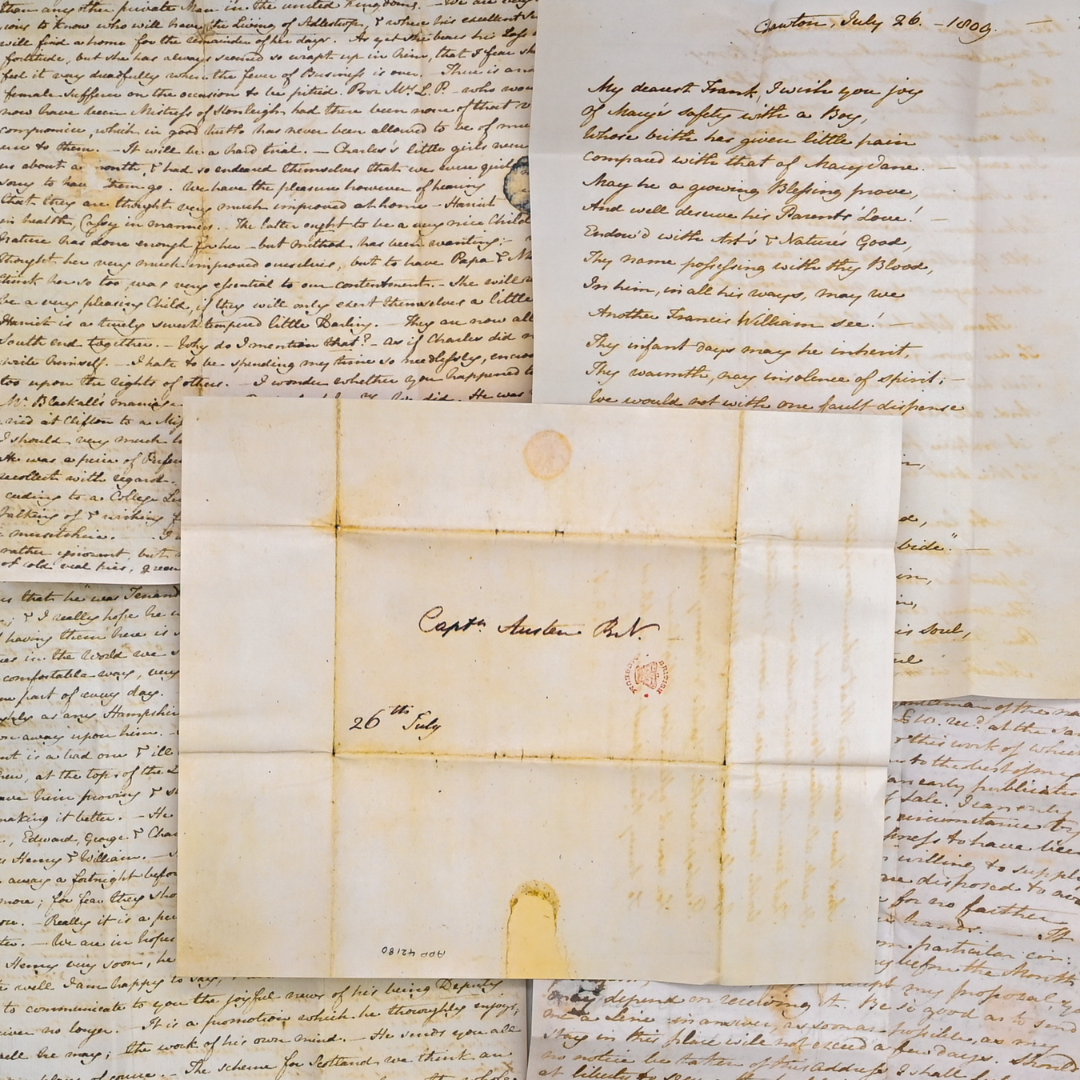 than any other private Man in the united Kingdoms. — We are very
ious to know who will have the Living of Adlestrop, & where his excellent
will find a home for the remainder of her days. As yet she bears his Loss
fortitude, but she has always seemed so wrapt up in him, that I fear sh
feel it very dreadfully when the fever of Business is over. — There is an
female Sufferer on the occasion to be pitied. Poor Mrs L. P. — who wou
now have been Mistress of Stonleigh had there been none of that v
compromise, which in good truth has never been allowed to be of mu
use to them. — It will be a hard trial. — Charles's little girls were
us about a month, & had so endeared themselves that we were quite
sorry to have them go. We have the pleasure however of hearing
that they are thought very much improved at home — Harriet
in health, Cassy in manners. — The latter ought to be a very nice Child
Nature has done enough for her — but Method has been wanting; —
thought her very much improved ourselves, but to have Papa & M
think her so too was very essential to our contentment. — She will
be a very pleasing Child, if they will only exert themselves a little
Harriet is a truly sweet-tempered little Darling. — They are now all
South end together. — Why do I mention that? — as if Charles did n
write himself. — I hate to be spending my time so needlessly, encro
too upon the rights of others. — I wonder whether you happened t
Mr Blackall's marriage
ried at Clifton to a Mi
I should very much l
He was a piece of Perfe
recollect with regard.
ceeding to a College Li
talking of & wishing f
rather ignorant, but
of cold veal pies, green
Chawton, July 26. — 1809.
My dearest Frank, I wish you joy
Of Mary's safety with a Boy,
Whose birth has given little pain
Compared with that of Mary Jane. —
May he a growing Blessing prove,
And well deserve his Parents' Love! —
Endow'd with Art's & Nature's Good,
Thy name possessing with thy Blood,
In him, in all his ways, may we
Another Francis William see! —
Thy infant days may he inherit,
Thy warmth, nay insolence of spirit; —
We would not with one fault dispense
bide." —
is soul,
Captn Austen R.N.
BRITISH MUSEUM
26th July
ADD 42180
us that he was Tenant
; & I really hope he
having them here is
es in the World we
comfortable way, very
part of every day.
as any Hampshire
away upon him.
is a bad one & ill
, at the top of the L
have him proving & s
making it better. — He
, Edward, George & Char
Henry & William. —
away a fortnight before
more; for fear they sho
— Really it is a pe
— We are in hopes
Henry very soon, he
well I am happy to say,
to communicate to you the joyful news of his being Deputy
no longer. — It is a promotion which he thoroughly enjoys;
well he may; the work of his own mind. — He sends you all
of course. — The scheme for Scotland, we think an
£10. recd at the
this work of which
to the best of my
an early publicatio
Sale. I can only
circumstance by
to have been
willing to suppl
are disposed to av
for no farther
hands. — It
particular cir:
before the Month
my proposal, yo
may depend on receiving it. Be so good as to send
me a Line in answer, as soon as possible, as my
stay in this place will not exceed a few days. Should
no notice be taken of this Address, I shall f
at liberty to